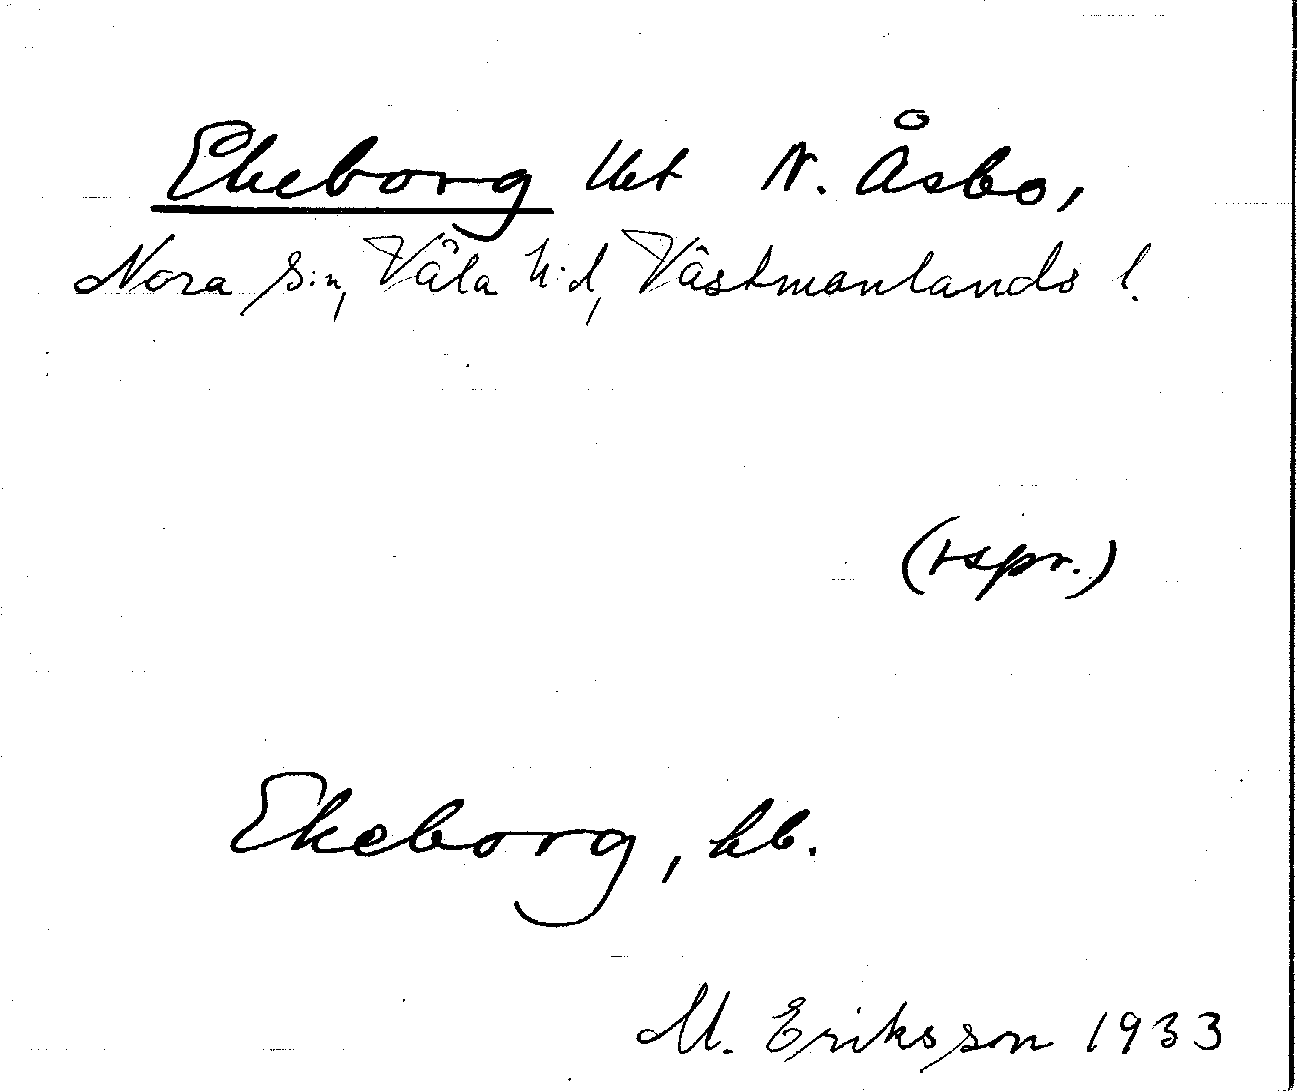 Ekeborg lht N. Åsbo,
Nora s:n, Våla h:d, Västmanlands l.
(rspr.)
Ekeborg, hb.
M. Eriksson 1933